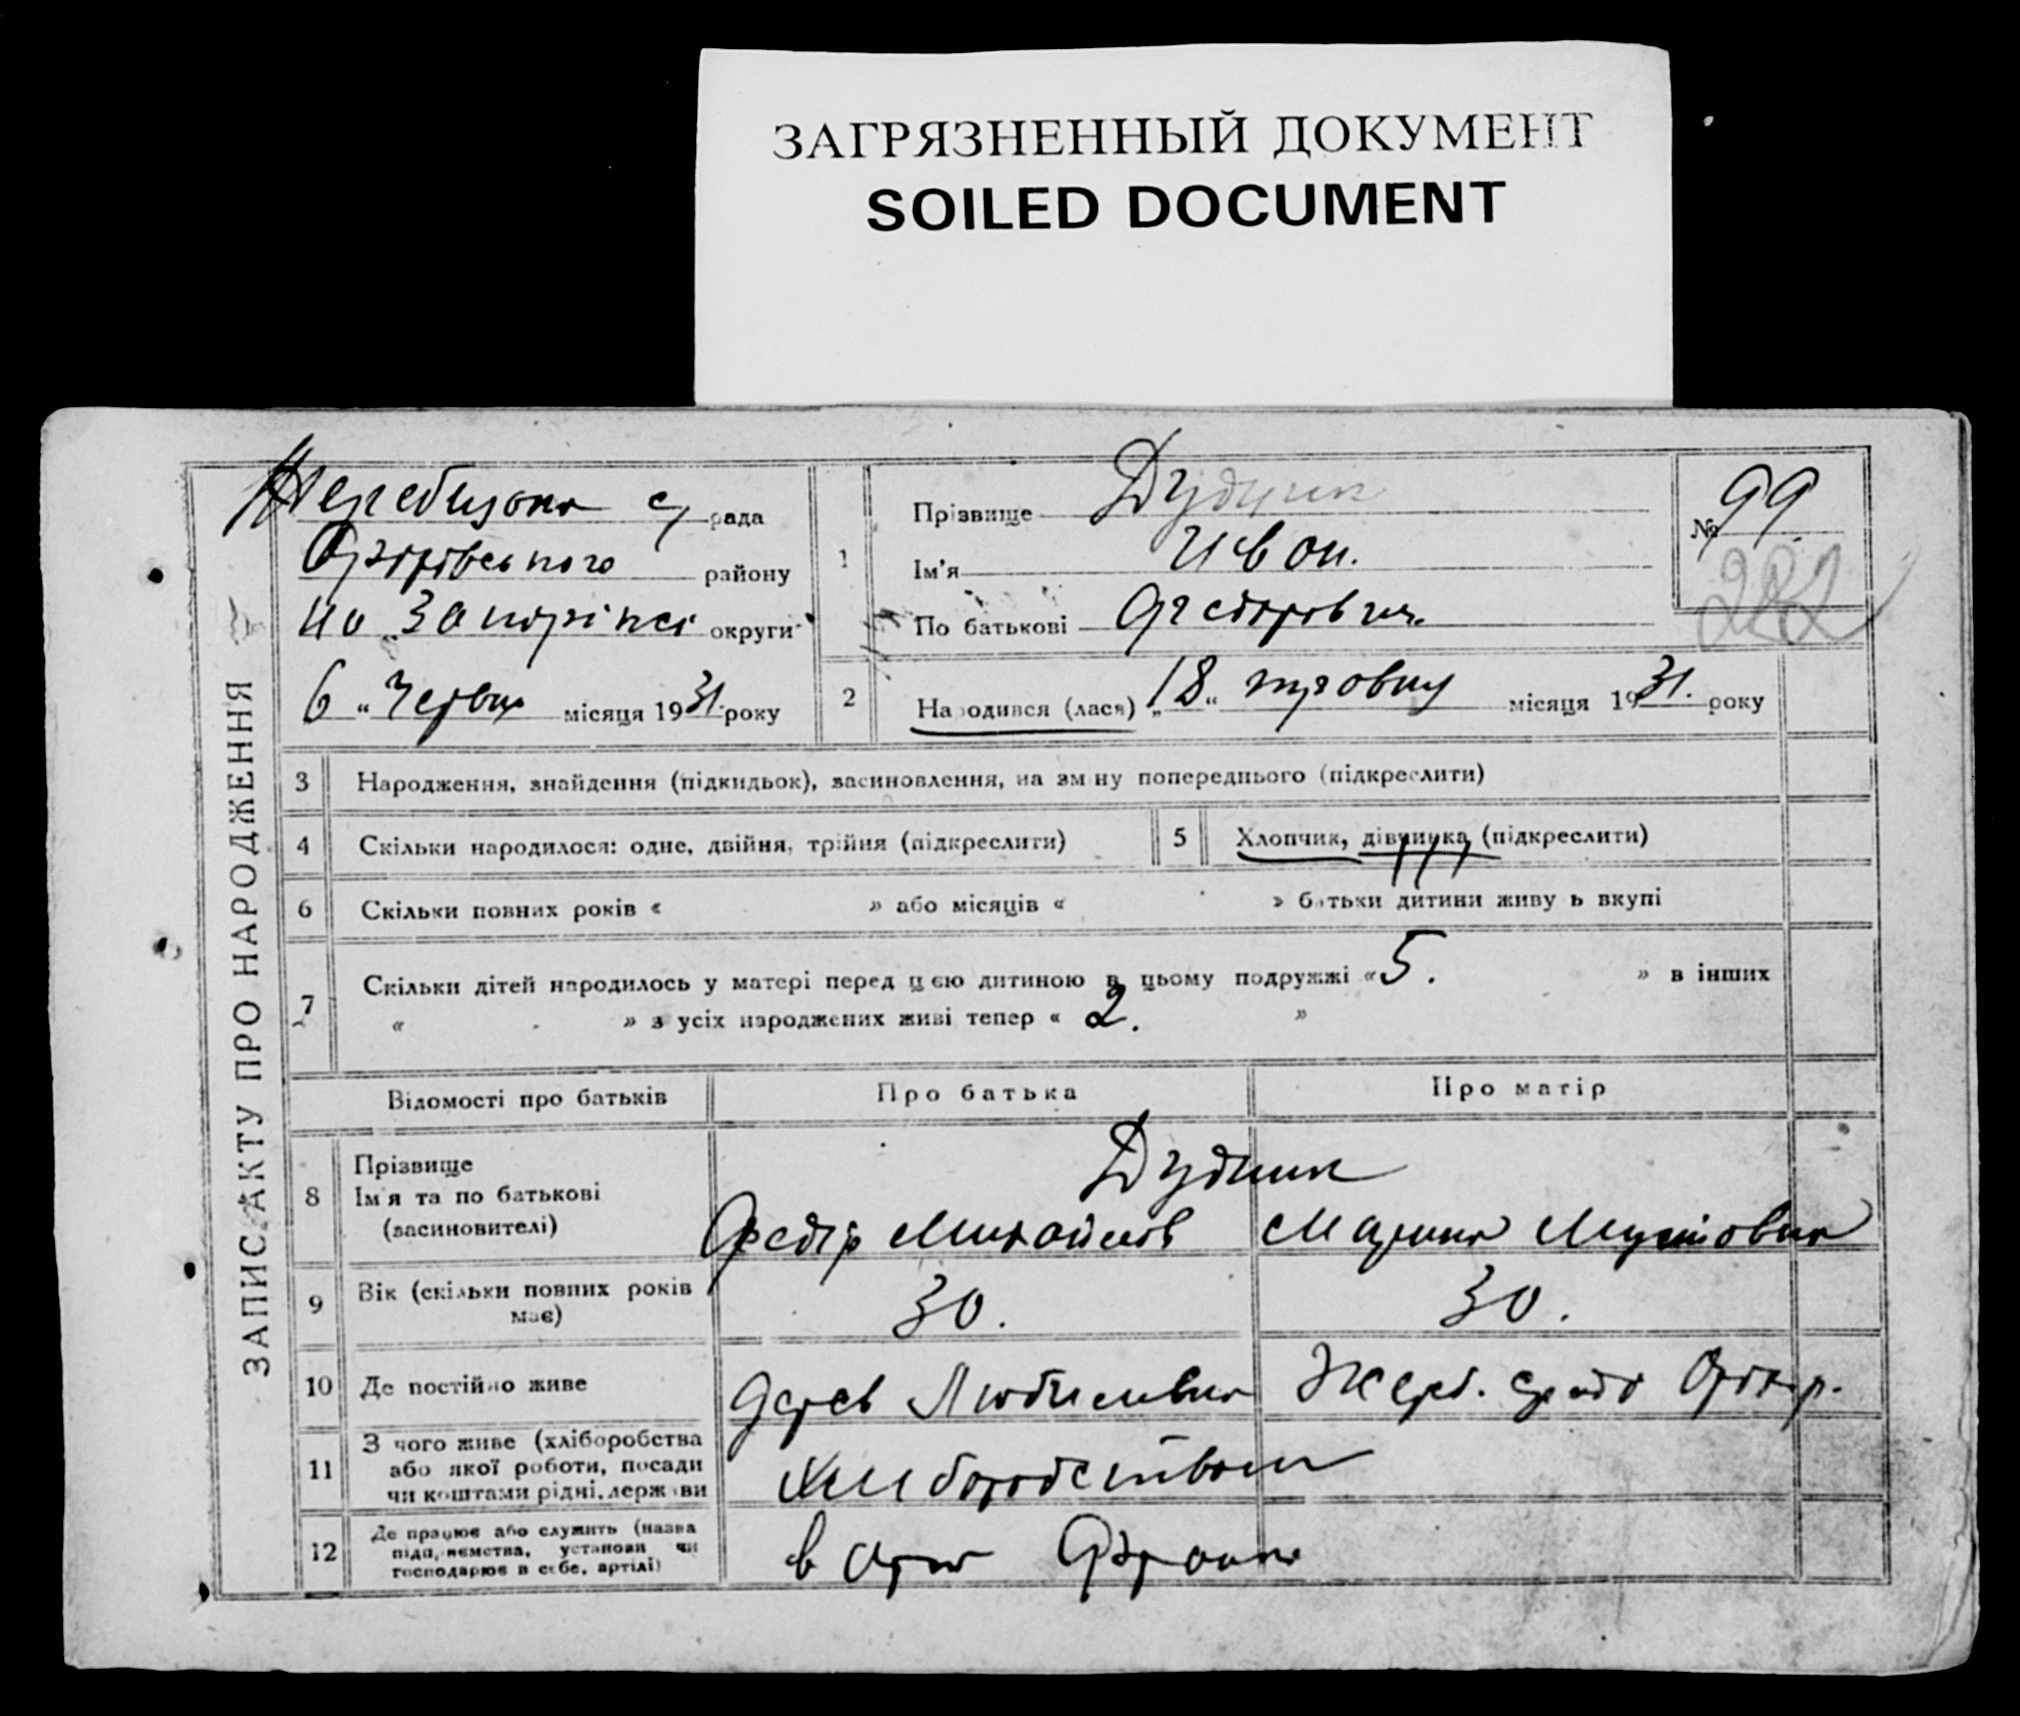 ЗАГРЯЗНЕННЫЙ ДОКУМЕНТ
SOILED DOCUMENT
ЗАПИС АКТУ ПРО НАРОДЖЕННЯ
рада
району
округи
6 " Червня місяця 1931 року
1
Прізвище Дудник
Ім'я Иван.
По батькові
№ 99
282
2
Народився (лася) „18" травня місяця 1931. року
3 Народження, знайдення (підкидьок), засиновлення, на зміну попереднього (підкреслити)
4 Скільки народилося: одне, двійня, трійня (підкреслити)
5 Хлопчик, дівчинка, (підкреслити)
6 Скільки повних років « » або місяців « » батьки дитини живуть вкупі
7 Скільки дітей народилось у матері перед цією дитиною в цьому подружжі «5. » в інших
« » з усіх народжених живі тепер « 2. »
Відомості про батьків
Про батька
Про матір
8 Прізвище
Ім'я та по батькові
(засиновителі)
Дудник
Федір Михайлов
Марина
9 Вік (скільки повних років має)
30.
30.
10 Де постійно живе
11 З чого живе (хліборобства
або якої роботи, посади
чи коштами рідні, держави
12 Де працює або служить (назва
підприємства, установи чи
господарює в себе, артілі)